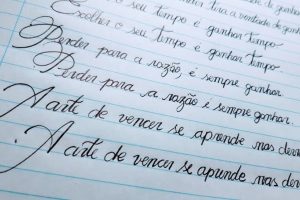 tira a vontade de ganhar
Escolher o seu tempo é ganhar tempo.
Escolher o seu tempo é ganhar tempo.
Perder para a razão, é sempre ganhar.
Perder para a razão é sempre ganhar.
A arte de vencer se aprende nas derr
A arte de vencer se aprende nas derr